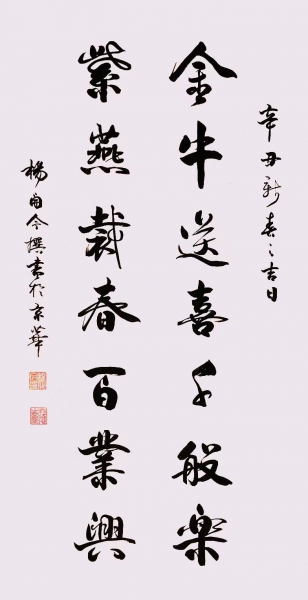 辛丑新春之吉日
金牛送喜千般樂
紫燕裁春百業興
楊自令撰書於京華